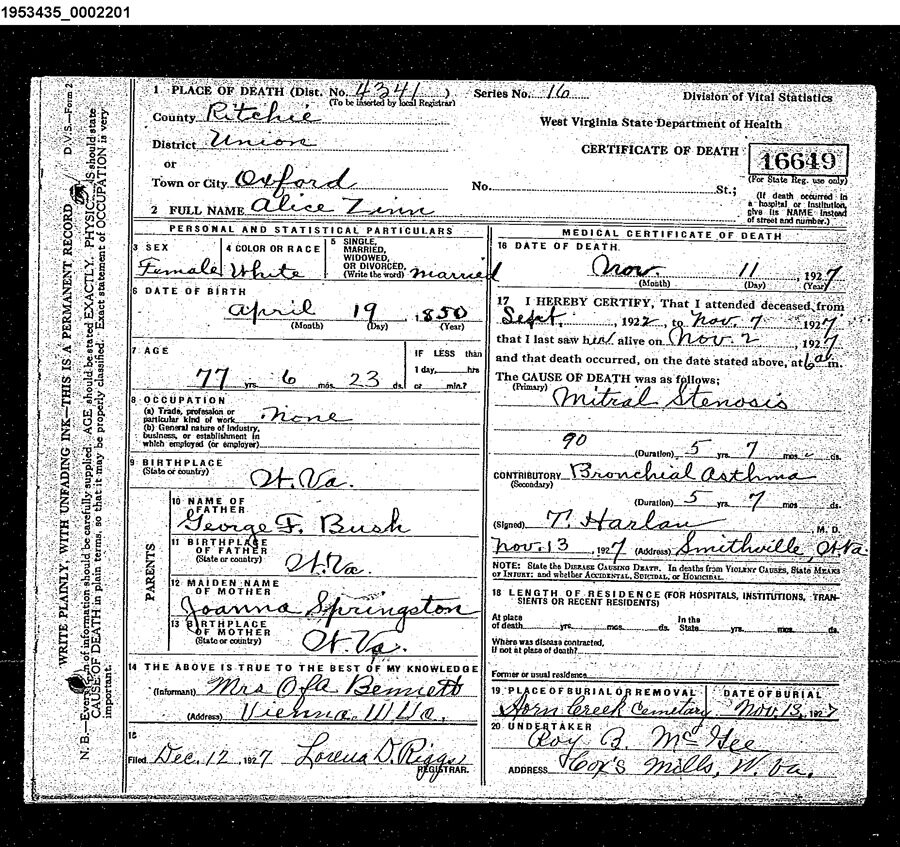 1953435_0002201
1 PLACE OF DEATH (Dist. No. 4341 ) Series No. 16 Division of Vital Statistics
(To be inserted by local Registrar)
County Ritchie
West Virginia State Department of Health
District Union
CERTIFICATE OF DEATH 16649
or
(For State Reg. use only)
Town or City Oxford No. St.;
(If death occurred in a hospital or institution, give its NAME instead of street and number.)
2 FULL NAME Alice Zinn
PERSONAL AND STATISTICAL PARTICULARS
3 SEX
Female
4 COLOR OR RACE
White
5 SINGLE, MARRIED, WIDOWED, OR DIVORCED,
(Write the word) married
6 DATE OF BIRTH
April 19 , 1850
(Month) (Day) (Year)
7 AGE
77 yrs. 6 mos. 23 ds.
IF LESS than
1 day, hrs
or min.?
8 OCCUPATION
(a) Trade, profession or
particular kind of work None
(b) General nature of industry,
business, or establishment in
which employed (or employer)
9 BIRTHPLACE
(State or country)
W. Va.
PARENTS
10 NAME OF
FATHER
George F. Bush
11 BIRTHPLACE
OF FATHER
(State or country)
W. Va.
12 MAIDEN NAME
OF MOTHER
Joanna Springston
13 BIRTHPLACE
OF MOTHER
(State or country)
W. Va.
14 THE ABOVE IS TRUE TO THE BEST OF MY KNOWLEDGE
(Informant) Mrs Ofa Bennett
(Address) Vienna W Va.
15
Filed Dec. 12, 1927 Lorena D. Riggs
REGISTRAR.
MEDICAL CERTIFICATE OF DEATH
16 DATE OF DEATH.
Nov. 11 , 1927
(Month) (Day) (Year)
17 I HEREBY CERTIFY, That I attended deceased from
Sept. , 1922, to Nov. 7 1927
that I last saw her alive on Nov. 2 , 1927
and that death occurred, on the date stated above, at 6 a.m.
The CAUSE OF DEATH was as follows;
(Primary) Mitral Stenosis
90
(Duration) 5 yrs. 7 mos. ds.
CONTRIBUTORY Bronchial Asthma
(Secondary)
(Duration) 5 yrs. 7 mos. ds.
(Signed) T. Harlan , M. D.
Nov. 13 , 1927 (Address) Smithville, W Va.
NOTE: State the DISEASE CAUSING DEATH. In deaths from VIOLENT CAUSES, State MEANS
OF INJURY: and whether ACCIDENTAL, SUICIDAL, or HOMICIDAL.
18 LENGTH OF RESIDENCE (FOR HOSPITALS, INSTITUTIONS, TRAN-
SIENTS OR RECENT RESIDENTS)
At place
of death yrs. mos. ds.
In the
State yrs. mos. ds.
Where was disease contracted,
if not at place of death?
Former or usual residence
19 PLACE OF BURIAL OR REMOVAL
Horn Creek Cemetary
DATE OF BURIAL
Nov. 13, 1927
20 UNDERTAKER
Roy B. McGee
ADDRESS Cox's Mills, W. Va.
D.V.S.—Form 2
WRITE PLAINLY, WITH UNFADING INK—THIS IS A PERMANENT RECORD
N. B.—Every item of information should be carefully supplied. AGE should be stated EXACTLY. PHYSICIANS should state
CAUSE OF DEATH in plain terms, so that it may be properly classified. Exact statement of OCCUPATION is very
important.